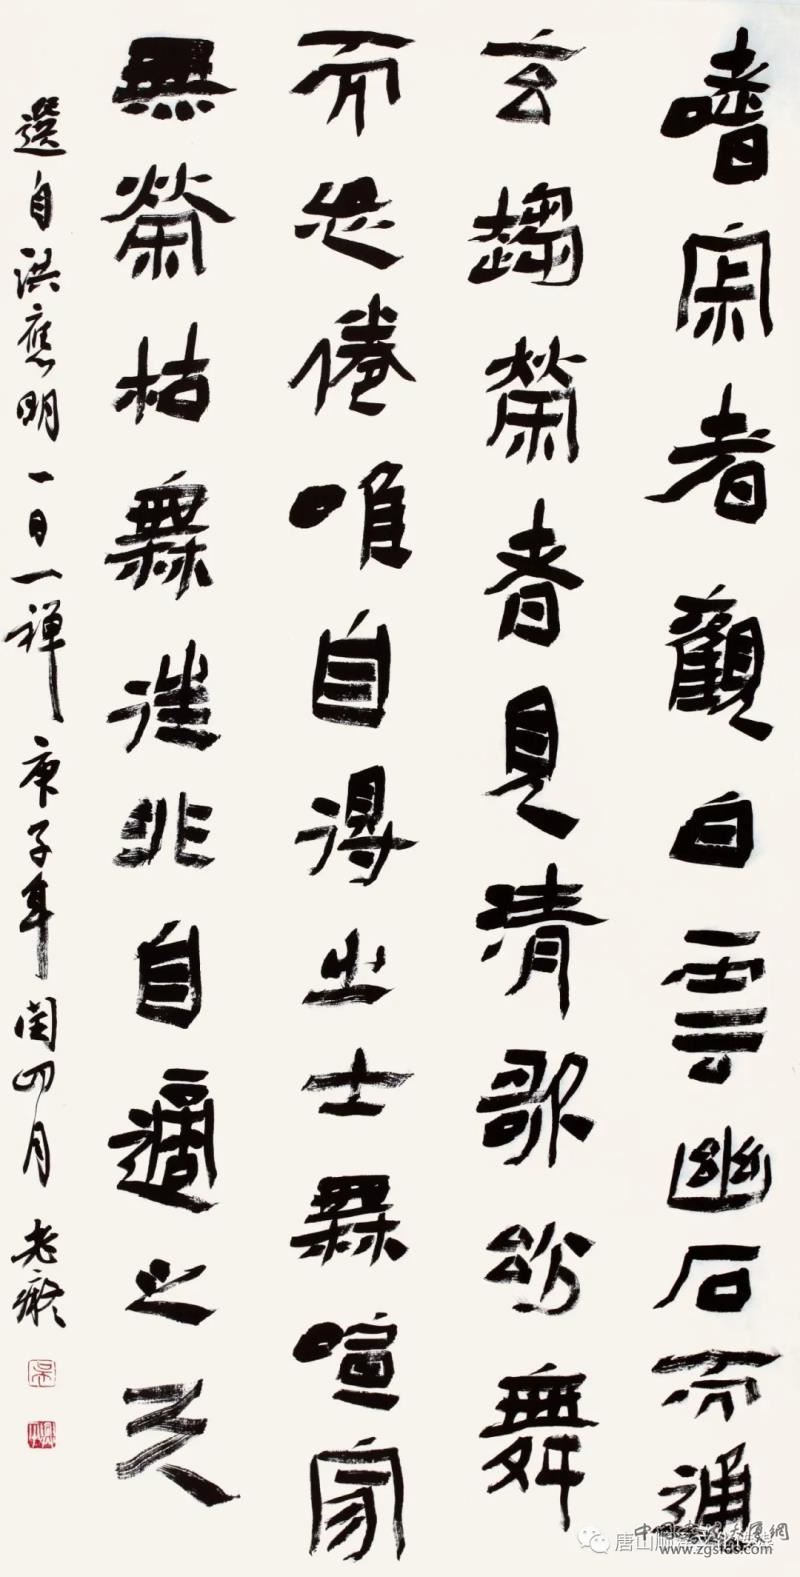 嗜寂者觀白雲幽石而通
玄趨榮者見清歌玅舞
而忘倦唯自得之士無喧寂
無榮枯無往非自適之天
選自洪應明一日一禪 庚子年閏四月 老癡
www.zgsfds.com